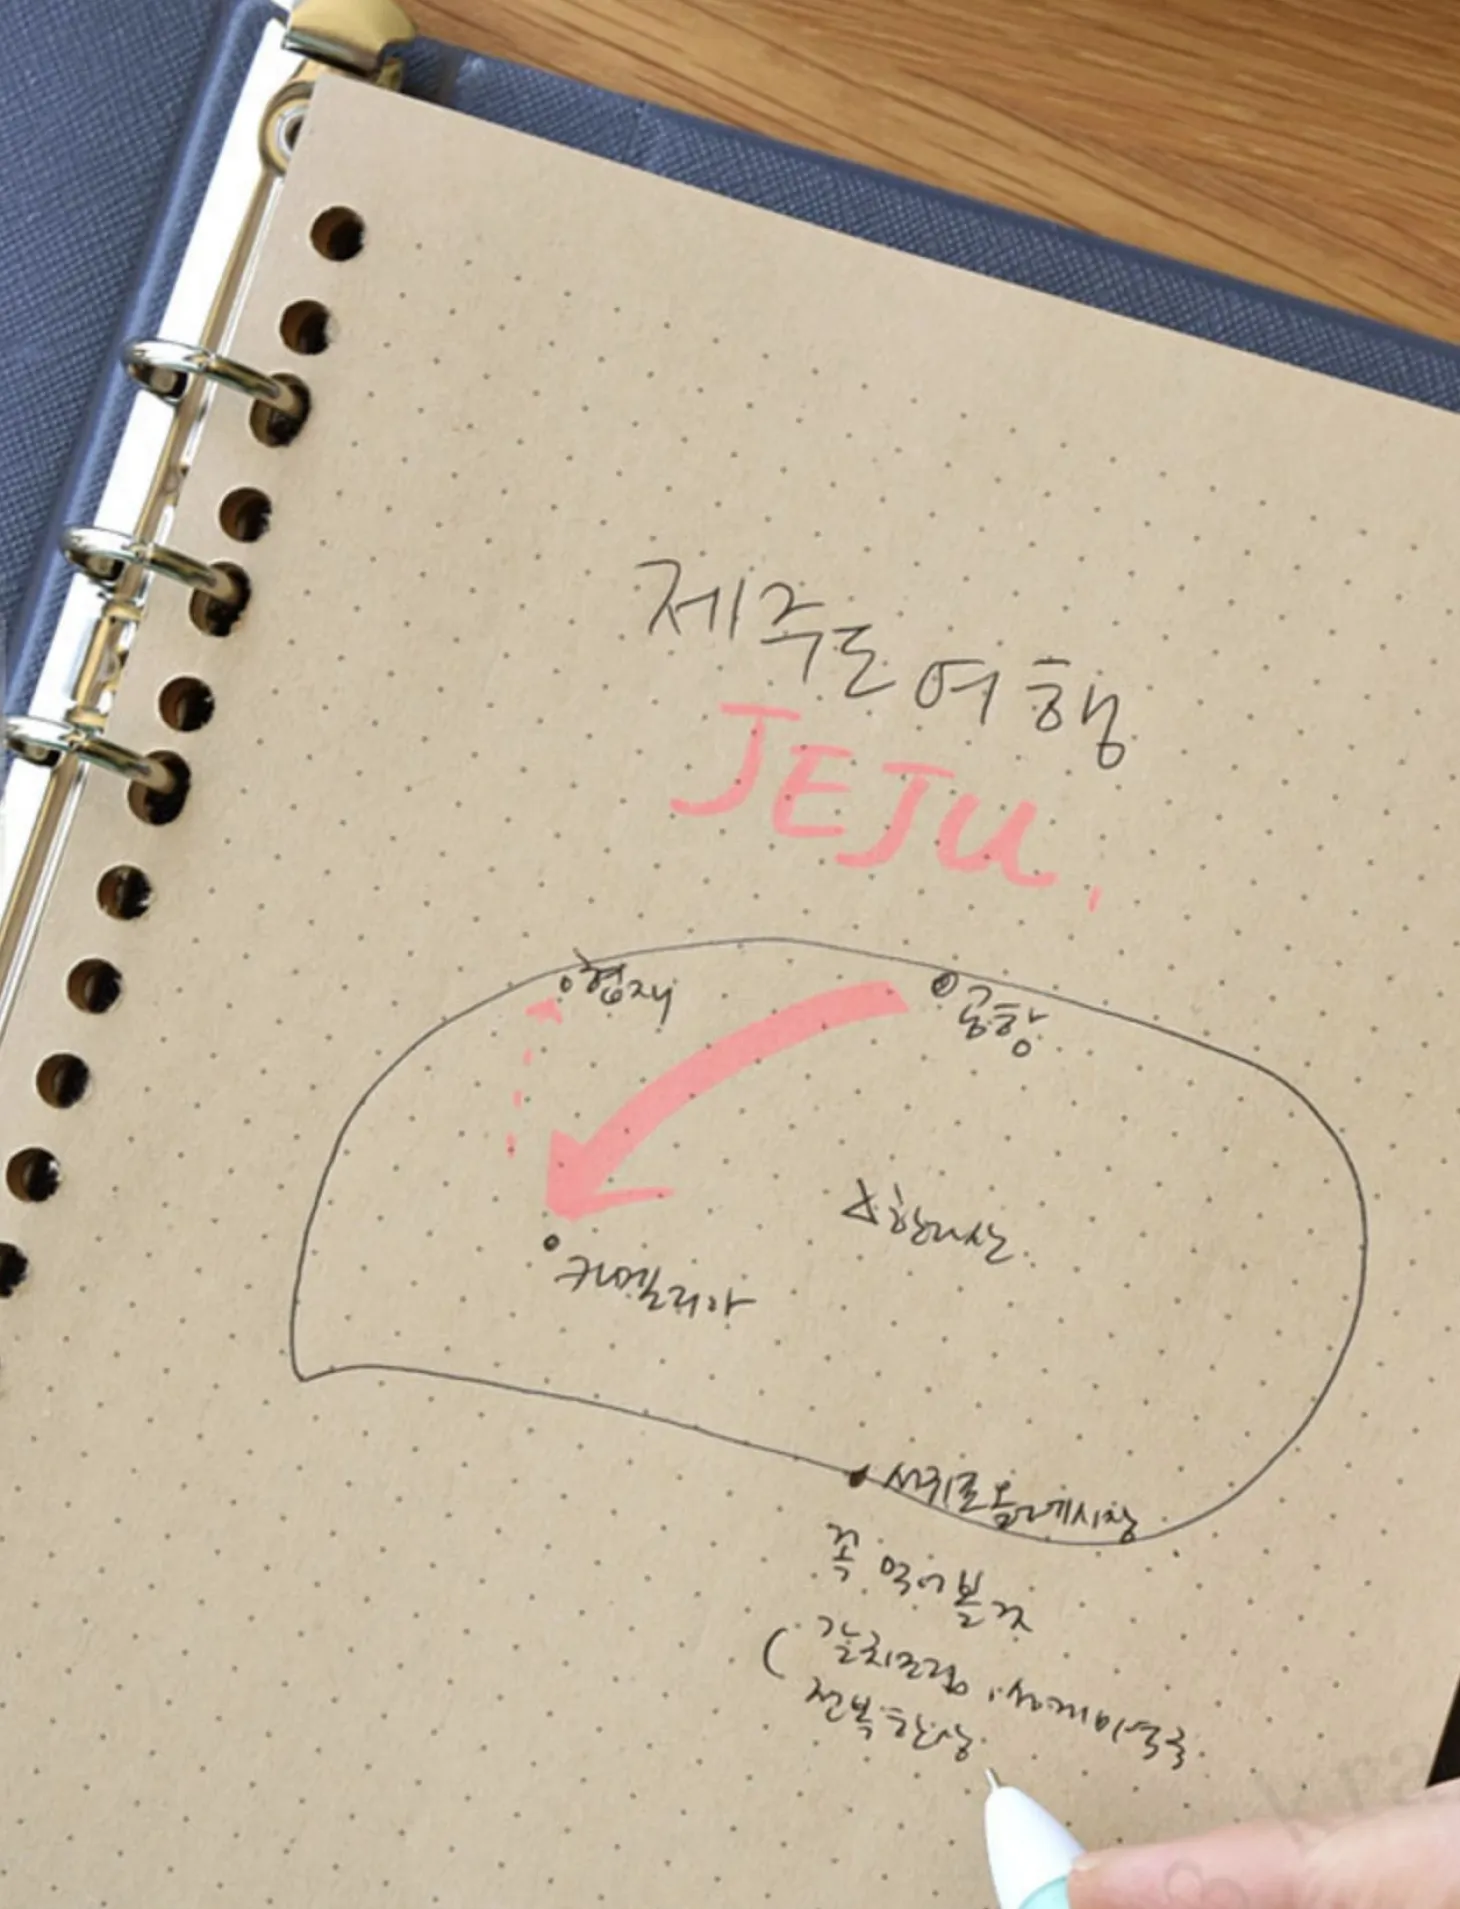 제주도 여행
JEJU.
협재
공항
한라산
카멜리아
서귀포올레시장
꼭 먹어볼 것
(갈치조림, 성게미역국
전복한상